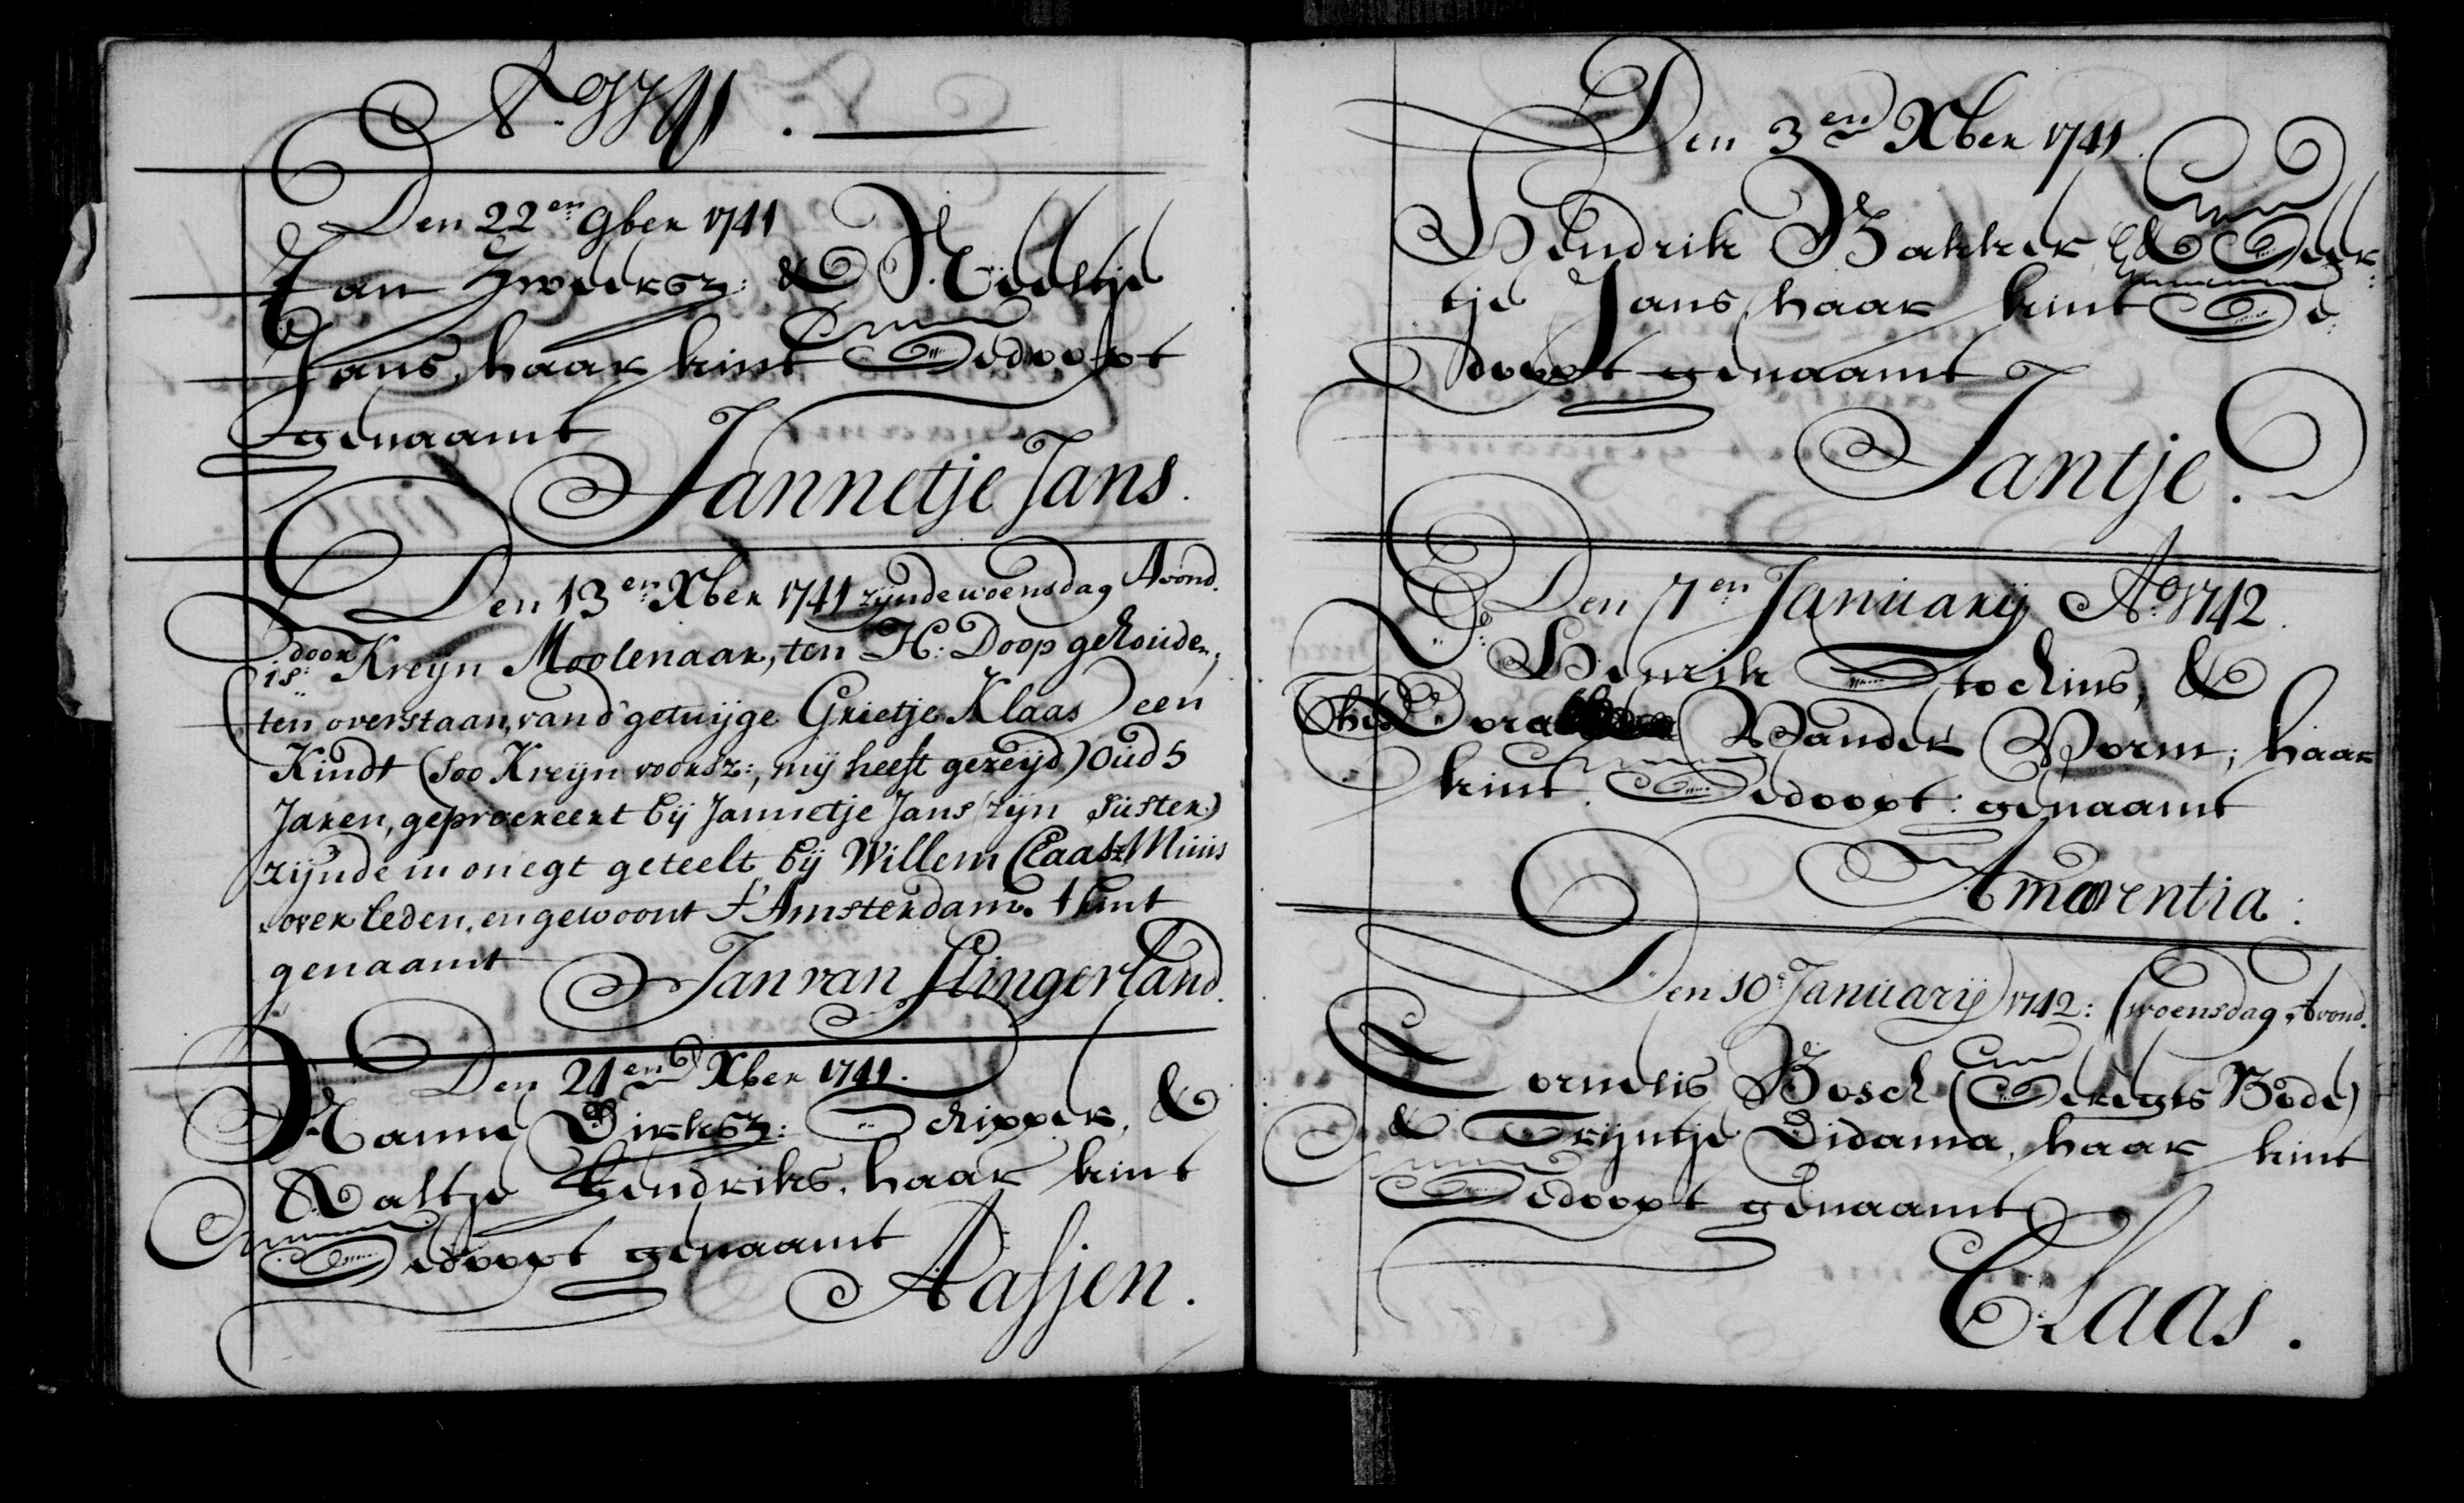 Ao. 1741.
Den 22en 9ber 1741
Jan Zweersz: & Neeltje
Jans, haar kint Gedoopt
genaamt
Jannetje Jans.
Den 13en Xber 1741 zijnde woensdag Avond.
is: door Kreyn Moolenaar, ten H: Doop gehouden,
ten overstaan, vand' getuijge Grietje Klaas een
Kindt (soo Kreijn voorsz:, mij heeft gezeijd) Oud 5
Jaren, geprocreert bij Jannetje Jans (zijn Suster)
zijnde in onegt geteelt bij Willem Claasz Muus
overleden, en gewoont t' Amsterdam. t kint
genaamt
Jan van Slingerland.
Den 21en Xber 1741.
Nanne Dirksz: Schipper, &
Aaltje Hendriks, haar kint
Gedoopt genaamt
Aafjen.
Den 3en Xber 1741.
Hendrik Bakker & Geer:
tje Jans, haar kint Ge:
doopt genaamt
Jantje.
Den 7en Januarij Ao. 1742.
Henrik Stochius, &
Theodora Vander Vorm; haar
kint. Gedoopt: genaamt
Amarentia:
Den 10e Januarij 1742: (woensdag Avond.
Cornelis Bosch (Geregts Bode)
& Trijntje Didama, haar kint
Gedoopt genaamt
Claas.